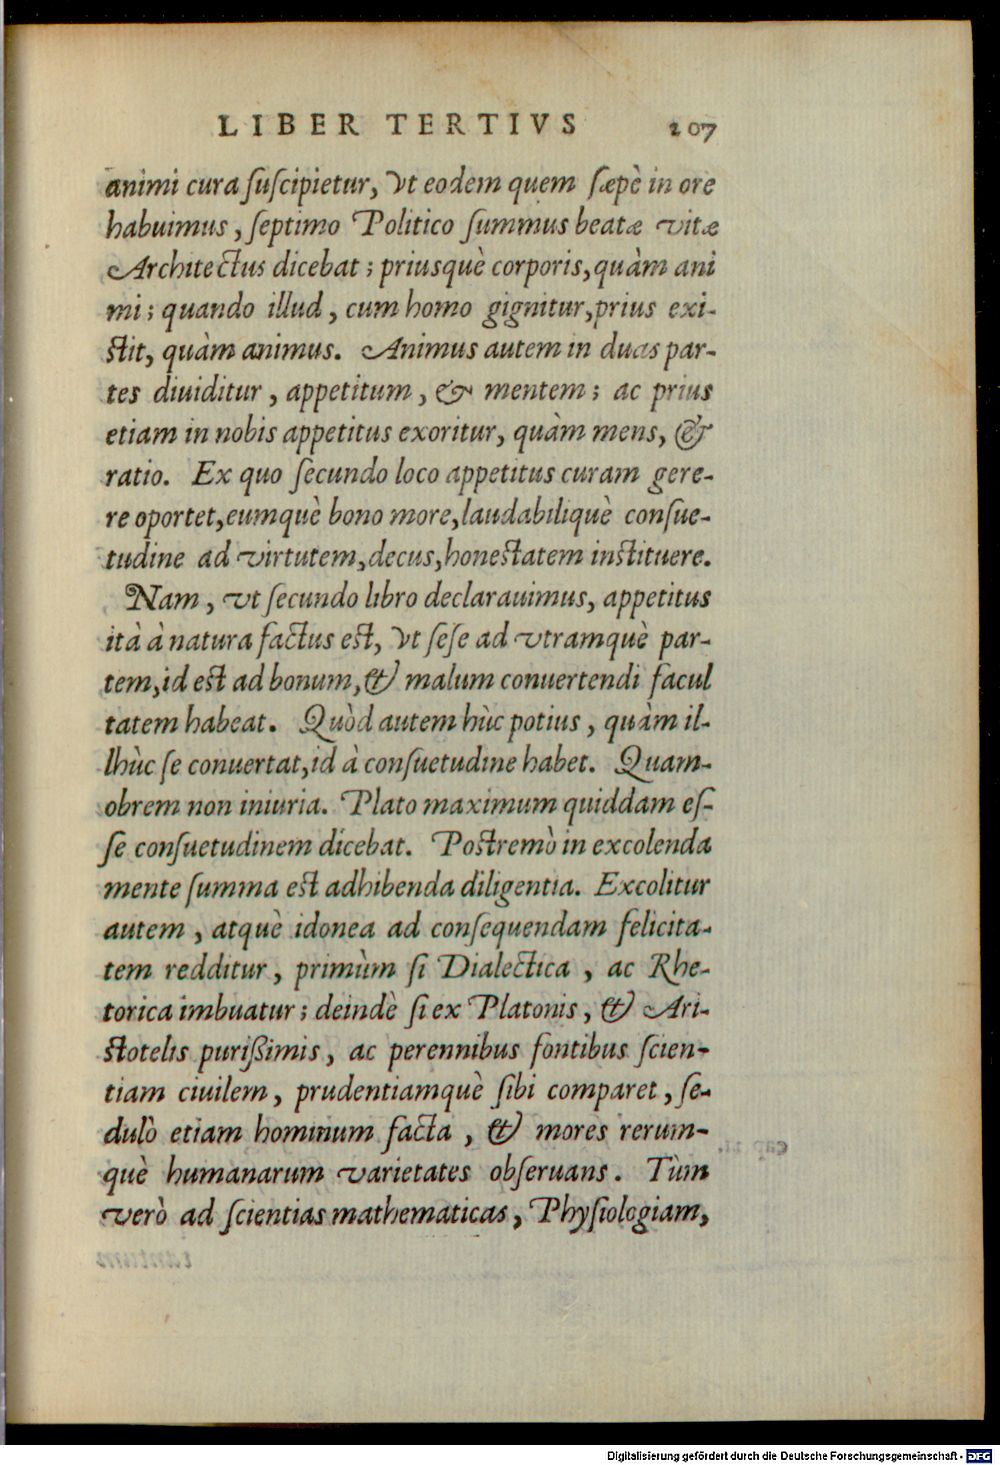 LIBER TERTIVS 207
animi cura ſuſcipietur, vt eodem quem ſæpè in ore
habuimus, ſeptimo Politico ſummus beatæ vitæ
Architectus dicebat; priusquè corporis, quàm ani
mi; quando illud, cum homo gignitur, prius exi-
ſtit, quàm animus. Animus autem in duas par-
tes diuiditur, appetitum, & mentem; ac prius
etiam in nobis appetitus exoritur, quàm mens, &
ratio. Ex quo ſecundo loco appetitus curam gere-
re oportet, eumquè bono more, laudabiliquè conſue-
tudine ad virtutem, decus, honeſtatem inſtituere.
Nam, vt ſecundo libro declarauimus, appetitus
ità à natura factus eſt, vt ſeſe ad vtramquè par-
tem, id eſt ad bonum, & malum conuertendi facul
tatem habeat. Quòd autem hùc potius, quàm il-
lhùc ſe conuertat, id à conſuetudine habet. Quam-
obrem non iniuria. Plato maximum quiddam eſ-
ſe conſuetudinem dicebat. Poſtremò in excolenda
mente ſumma eſt adhibenda diligentia. Excolitur
autem, atquè idonea ad conſequendam felicita-
tem redditur, primùm ſi Dialectica, ac Rhe-
torica imbuatur; deindè ſi ex Platonis, & Ari-
ſtotelis purißimis, ac perennibus fontibus ſcien-
tiam ciuilem, prudentiamquè ſibi comparet, ſe-
dulò etiam hominum facta, & mores rerum-
què humanarum varietates obſeruans. Tùm
verò ad ſcientias mathematicas, Phyſiologiam,
Digitalisierung gefördert durch die Deutsche Forschungsgemeinschaft - DFG